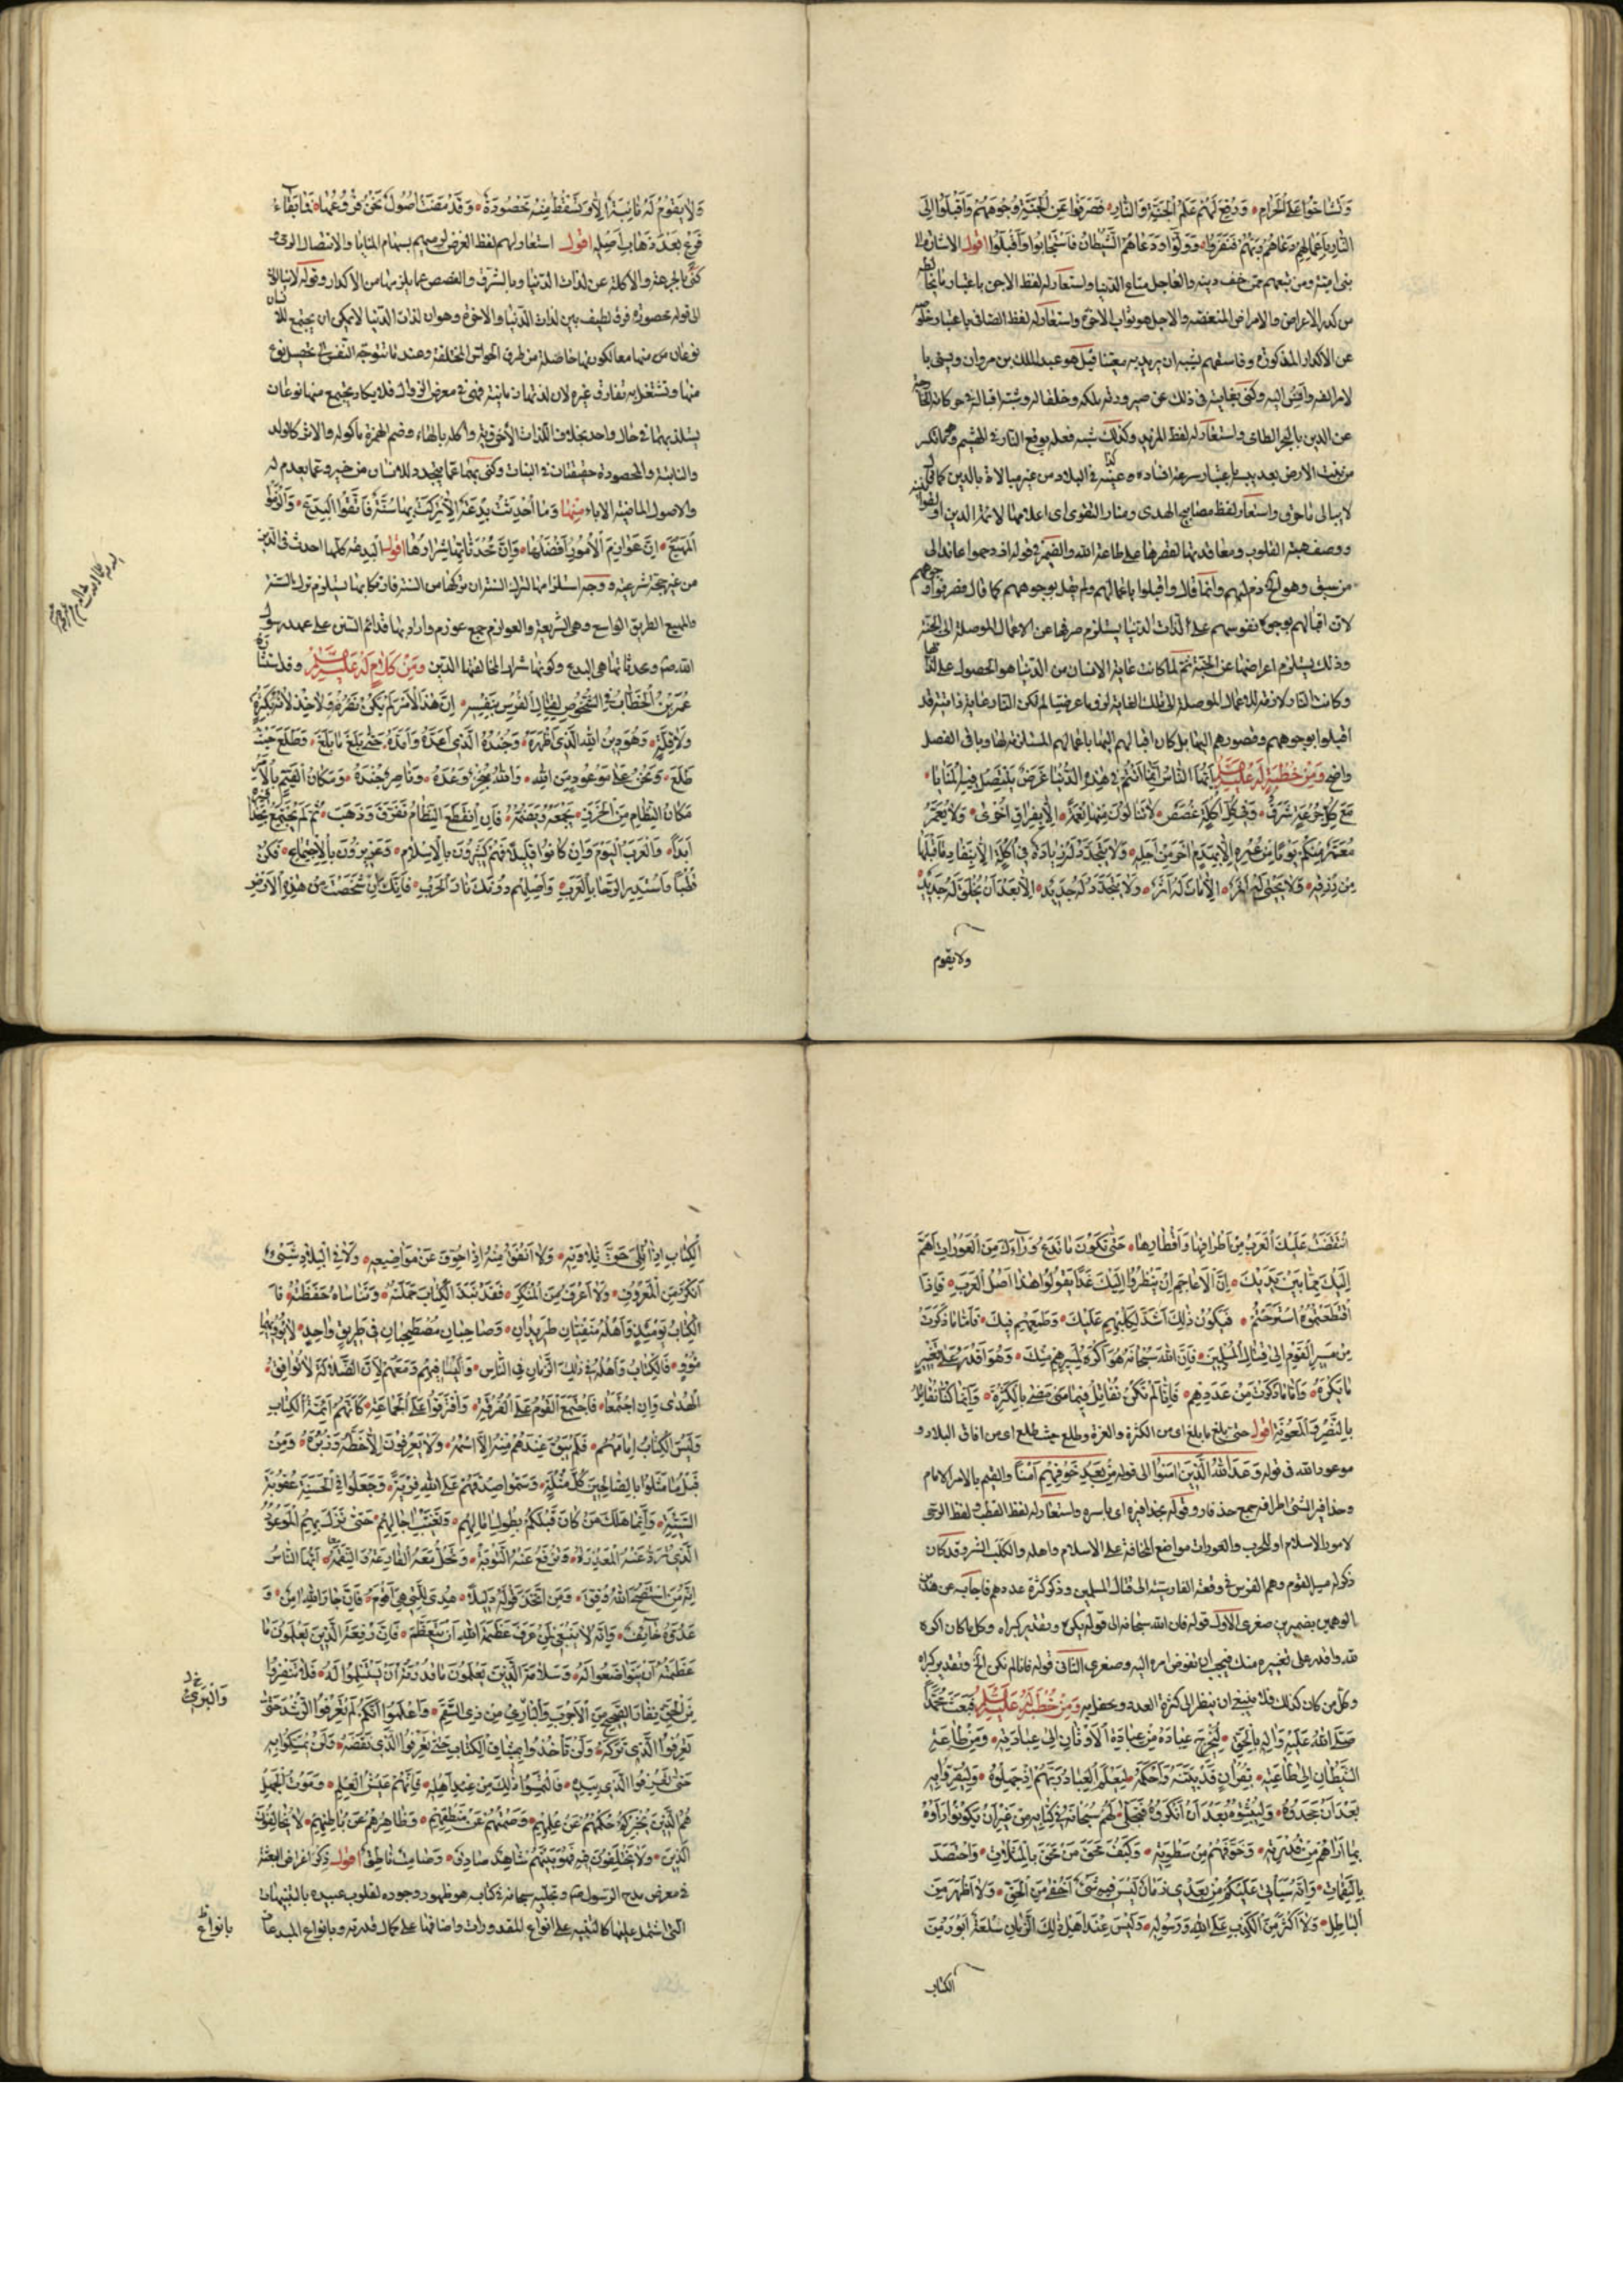 وَتَشَاحُّوا عَلَى الْحَرَامِ وَرُفِعَ لَهُمْ عَلَمُ الْجَنَّةِ وَالنَّارِ فَصَرَفُوا عَنِ الْجَنَّةِ وُجُوهَهُمْ وَأَقْبَلُوا إِلَى
النَّارِ بِأَعْمَالِهِمْ دَعَاهُمْ رَبُّهُمْ فَنَفَرُوا وَوَلَّوْا وَدَعَاهُمُ الشَّيْطَانُ فَاسْتَجَابُوا وَأَقْبَلُوا اقول الاشارة الى
بنى امية ومن تبعهم ممن خف دينه والعاجل متاع الدنيا واستعار له لفظ الاجن باعتبار ما
من كدر الاعراض والامراض المنغصه والاجل هو ثواب الاخرة واستعار له لفظ الصافى باعتبار خلوه
عن الاكدار المذكورة وفاسقهم يشبه ان يريد به معينا قيل هو عبد الملك بن مروان
وكنى بغايته فى ذلك عن صيرورته ملكه وخلقا له
واستعار له لفظ المزبد وكذلك شبه فعله بوقع النار فى الهشيم
لا يبالى ما حرق واستعار لفظ مصابيح الهدى ومنار التقوى اى اعلامها لائمة الدين
ووصف هبة القلوب ومعاقدتها لقصرها على طاعة الله والضمير فى قوله ازدحموا عائد الى
من سبق وهو ذم لهم وانما قال واقبلوا باعمالهم ولم يقل بوجوههم كما قال فصرفوا وجوههم
لان اقبالهم بوجوه نفوسهم على لذات الدنيا يستلزم صرفها عن الاعمال الموصلة الى الجنة
وذلك يستلزم اعراضها عن الجنة ثم لما كانت غاية الانسان من الدنيا هو الحصول على لذاتها
وكانت النار لازمة للاعمال الموصلة الى تلك الغاية لزوما عرضيا لم تكن النار غاية ذاتية قد
اقبلوا بوجوههم وقصورهم اليها بل كان اقبالهم اليها باعمالهم المستلزمة لها وباقى الفصل
واضح وَمِنْ خُطْبَةٍ لَهُ عَلَيْهِ السَّلَامُ أَيُّهَا النَّاسُ إِنَّمَا أَنْتُمْ فِي هَذِهِ الدُّنْيَا غَرَضٌ تَنْتَضِلُ فِيهِ الْمَنَايَا
مَعَ كُلِّ جُرْعَةٍ شَرَقٌ وَفِي كُلِّ أَكْلَةٍ غَصَصٌ لَا تَنَالُونَ مِنْهَا نِعْمَةً إِلَّا بِفِرَاقِ أُخْرَى وَلَا يُعَمَّرُ
مُعَمَّرٌ مِنْكُمْ يَوْمًا مِنْ عُمُرِهِ إِلَّا بِهَدْمِ آخَرَ مِنْ أَجَلِهِ وَلَا تُجَدَّدُ لَهُ زِيَادَةٌ فِي أُكُلِهِ إِلَّا بِنَفَادِ مَا قَبْلَهَا
مِنْ رِزْقِهِ وَلَا يَحْيَى لَهُ أَثَرٌ إِلَّا مَاتَ لَهُ أَثَرٌ وَلَا يَتَجَدَّدُ لَهُ جَدِيدٌ إِلَّا بَعْدَ أَنْ يَخْلَقَ لَهُ جَدِيدٌ
ولا يقوم
وَلَا يَقُومُ لَهُ نَابِتَةٌ إِلَّا وَتَسْقُطُ مِنْهُ مَحْصُودَةٌ وَقَدْ مَضَتْ أُصُولٌ نَحْنُ فُرُوعُهَا فَمَا بَقَاءُ
فَرْعٍ بَعْدَ ذَهَابِ أَصْلِهِ اقول استعار لهم لفظ الغرض لرميهم بسهام المنايا والانتضال الرمى و
كنى بالجرعة والاكلة عن لذات الدنيا وبالشرق والغصص عما يلزمها من الاكدار وقوله لا ينالون
الى قوله محصودة فرق لطيف بين لذات الدنيا والاخرة وهو ان لذات الدنيا لا يمكن ان يجتمع للانسان
نوعان منها معا لكونها حاصلة من طرق الحواس المختلفة وعند ما تتوجه النفس الى تحصيل نوع
منها وتشتغل به تفارق غيره لان لذتها زمانية فهى فى معرض الزوال فلا يكاد يجتمع منها نوعان
يستلذ بهما فى حال واحد بخلاف اللذات الاخروية واكله بالهاء وضم الهمزة ماكوله والاثر كالولد
والنابتة والمحصودة حقيقتان فى النبات وكنى بهما عما يتجدد للانسان من خير وعما يعدم له
والاصول الماضية الاباء مِنْهَا وَمَا أُحْدِثَتْ بِدْعَةٌ إِلَّا تُرِكَ بِهَا سُنَّةٌ فَاتَّقُوا الْبِدَعَ وَالْزَمُوا
الْمَهْيَعَ إِنَّ عَوَازِمَ الْأُمُورِ أَفْضَلُهَا وَإِنَّ مُحْدَثَاتِهَا شِرَارُهَا اقول البدعة كلما احدث فى الدين
من غير حجة شرعية ووجه استلزامها لترك السنة ان تركها من السنة فارتكابها يستلزم ترك السنة
والمهيع الطريق الواسع وهى الشريعة والعوازم جمع عوزم واراد بها قدائم السنن على عهد رسول
الله ص وعدثاتها هى البدع وكونها شرارا لمخالفتها الدين وَمِنْ كَلَامٍ لَهُ عَلَيْهِ السَّلَامُ وقد استشاره
عُمَرُ بْنُ الْخَطَّابِ فِي الشُّخُوصِ لِقِتَالِ الْفُرْسِ بِنَفْسِهِ إِنَّ هَذَا الْأَمْرَ لَمْ يَكُنْ نَصْرُهُ وَلَا خِذْلَانُهُ بِكَثْرَةٍ
وَلَا قِلَّةٍ وَهُوَ دِينُ اللَّهِ الَّذِي أَظْهَرَهُ وَجُنْدُهُ الَّذِي أَعَدَّهُ وَأَمَدَّهُ حَتَّى بَلَغَ مَا بَلَغَ وَطَلَعَ حَيْثُ
طَلَعَ وَنَحْنُ عَلَى مَوْعُودٍ مِنَ اللَّهِ وَاللَّهُ مُنْجِزٌ وَعْدَهُ وَنَاصِرٌ جُنْدَهُ وَمَكَانُ الْقَيِّمِ بِالْأَمْرِ
مَكَانُ النِّظَامِ مِنَ الْخَرَزِ يَجْمَعُهُ وَيَضُمُّهُ فَإِنِ انْقَطَعَ النِّظَامُ تَفَرَّقَ وَذَهَبَ ثُمَّ لَمْ يَجْتَمِعْ بِحَذَافِيرِهِ
أَبَدًا وَالْعَرَبُ الْيَوْمَ وَإِنْ كَانُوا قَلِيلًا فَهُمْ كَثِيرُونَ بِالْإِسْلَامِ وَعَزِيزُونَ بِالِاجْتِمَاعِ فَكُنْ
قُطْبًا وَاسْتَدِرِ الرَّحَا بِالْعَرَبِ وَأَصْلِهِمْ دُونَكَ نَارَ الْحَرْبِ فَإِنَّكَ إِنْ شَخَصْتَ مِنْ هَذِهِ الْأَرْضِ
انْتَقَضَتْ عَلَيْكَ الْعَرَبُ مِنْ أَطْرَافِهَا وَأَقْطَارِهَا حَتَّى تَكُونَ مَا تَدَعُ وَرَاءَكَ مِنَ الْعَوْرَاتِ أَهَمَّ
إِلَيْكَ مِمَّا بَيْنَ يَدَيْكَ إِنَّ الْأَعَاجِمَ إِنْ يَنْظُرُوا إِلَيْكَ غَدًا يَقُولُوا هَذَا أَصْلُ الْعَرَبِ فَإِذَا
اقْتَطَعْتُمُوهُ اسْتَرَحْتُمْ فَيَكُونُ ذَلِكَ أَشَدَّ لِكَلَبِهِمْ عَلَيْكَ وَطَمَعِهِمْ فِيكَ فَأَمَّا مَا ذَكَرْتَ
مِنْ مَسِيرِ الْقَوْمِ إِلَى قِتَالِ الْمُسْلِمِينَ فَإِنَّ اللَّهَ سُبْحَانَهُ هُوَ أَكْرَهُ لِمَسِيرِهِمْ مِنْكَ وَهُوَ أَقْدَرُ عَلَى تَغْيِيرِ
مَا يَكْرَهُ وَأَمَّا مَا ذَكَرْتَ مِنْ عَدَدِهِمْ فَإِنَّا لَمْ نَكُنْ نُقَاتِلُ فِيمَا مَضَى بِالْكَثْرَةِ وَإِنَّمَا كُنَّا نُقَاتِلُ
بِالنَّصْرِ وَالْمَعُونَةِ اقول حتى بلغ ما بلغ اى من الكثرة والعزة وطلع حيث طلع اى من افاق البلاد و
موعود الله فى قوله وَعَدَ اللَّهُ الَّذِينَ آمَنُوا الى قوله مِنْ بَعْدِ خَوْفِهِمْ أَمْنًا والقيم بالامر الامام
وحذافير الشئ اطرافه جمع حذفار وقوله بحذافيره اى باسره واستعار له لفظ القطب ولفظ الرحى
لامور الاسلام او للحرب والعورات مواضع المخافة على الاسلام واهله والكلب الشر وقد كان
ذكر له مسير القوم وهم الفرس فى وقعة القادسية الى قتال المسلمين وذكر كثرة عددهم فاجابه عن هذين
الوهمين بضميرين صغرى الاول قوله فان الله سبحانه الى قوله يكره وتقدير كبراه وكل ما كان اكره
لله واقدر على تغييره منك فيجب ان تفوض امره اليه وصغرى الثانى قوله فانا لم نكن الخ وتقدير كبراه
وكل من كان كذلك فلا ينبغى ان ينظر الى كثرة العدد وَمِنْ خُطْبَةٍ لَهُ عَلَيْهِ السَّلَامُ فَبَعَثَ مُحَمَّدًا
صَلَّى اللَّهُ عَلَيْهِ وَآلِهِ بِالْحَقِّ لِيُخْرِجَ عِبَادَهُ مِنْ عِبَادَةِ الْأَوْثَانِ إِلَى عِبَادَتِهِ وَمِنْ طَاعَةِ
الشَّيْطَانِ إِلَى طَاعَتِهِ بِقُرْآنٍ قَدْ بَيَّنَهُ وَأَحْكَمَهُ لِيَعْلَمَ الْعِبَادُ رَبَّهُمْ إِذْ جَهِلُوهُ وَلِيُقِرُّوا بِهِ
بَعْدَ أَنْ جَحَدُوهُ وَلِيُثْبِتُوهُ بَعْدَ أَنْ أَنْكَرُوهُ فَتَجَلَّى لَهُمْ سُبْحَانَهُ فِي كِتَابِهِ مِنْ غَيْرِ أَنْ يَكُونُوا رَأَوْهُ
بِمَا أَرَاهُمْ مِنْ قُدْرَتِهِ وَخَوَّفَهُمْ مِنْ سَطْوَتِهِ وَكَيْفَ مَحَقَ مَنْ مَحَقَ بِالْمَثُلَاتِ وَاحْتَصَدَ
بِالنَّقِمَاتِ وَإِنَّهُ سَيَأْتِي عَلَيْكُمْ مِنْ بَعْدِي زَمَانٌ لَيْسَ فِيهِ شَيْءٌ أَخْفَى مِنَ الْحَقِّ وَلَا أَظْهَرَ مِنَ
الْبَاطِلِ وَلَا أَكْثَرَ مِنَ الْكَذِبِ عَلَى اللَّهِ وَرَسُولِهِ وَلَيْسَ عِنْدَ أَهْلِ ذَلِكَ الزَّمَانِ سِلْعَةٌ أَبْوَرَ مِنَ
الكتاب
الْكِتَابِ إِذَا تُلِيَ حَقَّ تِلَاوَتِهِ وَلَا أَنْفَقَ مِنْهُ إِذَا حُرِّفَ عَنْ مَوَاضِعِهِ وَلَا فِي الْبِلَادِ شَيْءٌ
أَنْكَرَ مِنَ الْمَعْرُوفِ وَلَا أَعْرَفَ مِنَ الْمُنْكَرِ فَقَدْ نَبَذَ الْكِتَابَ حَمَلَتُهُ وَتَنَاسَاهُ حَفَظَتُهُ فَا
لْكِتَابُ يَوْمَئِذٍ وَأَهْلُهُ مَنْفِيَّانِ طَرِيدَانِ وَصَاحِبَانِ مُصْطَحِبَانِ فِي طَرِيقٍ وَاحِدٍ لَا يُؤْوِيهِمَا
مُؤْوٍ فَالْكِتَابُ وَأَهْلُهُ فِي ذَلِكَ الزَّمَانِ فِي النَّاسِ وَلَيْسَا فِيهِمْ وَمَعَهُمْ لِأَنَّ الضَّلَالَةَ لَا تُوَافِقُ
الْهُدَى وَإِنِ اجْتَمَعَا فَاجْتَمَعَ الْقَوْمُ عَلَى الْفُرْقَةِ وَافْتَرَقُوا عَلَى الْجَمَاعَةِ كَأَنَّهُمْ أَئِمَّةُ الْكِتَابِ
وَلَيْسَ الْكِتَابُ إِمَامَهُمْ فَلَمْ يَبْقَ عِنْدَهُمْ مِنْهُ إِلَّا اسْمُهُ وَلَا يَعْرِفُونَ إِلَّا خَطَّهُ وَزَبْرَهُ وَمِنْ
قَبْلُ مَا مَثَّلُوا بِالصَّالِحِينَ كُلَّ مُثْلَةٍ وَسَمَّوْا صِدْقَهُمْ عَلَى اللَّهِ فِرْيَةً وَجَعَلُوا فِي الْحَسَنَةِ عُقُوبَةَ
السَّيِّئَةِ وَإِنَّمَا هَلَكَ مَنْ كَانَ قَبْلَكُمْ بِطُولِ آمَالِهِمْ وَتَغَيُّبِ آجَالِهِمْ حَتَّى نَزَلَ بِهِمُ الْمَوْعُودُ
الَّذِي تُرَدُّ عَنْهُ الْمَعْذِرَةُ وَتُرْفَعُ عَنْهُ التَّوْبَةُ وَتَحُلُّ مَعَهُ الْقَارِعَةُ وَالنَّقِمَةُ أَيُّهَا النَّاسُ
إِنَّهُ مَنِ اسْتَنْصَحَ اللَّهَ وُفِّقَ وَمَنِ اتَّخَذَ قَوْلَهُ دَلِيلًا هُدِيَ لِلَّتِي هِيَ أَقْوَمُ فَإِنَّ جَارَ اللَّهِ آمِنٌ وَ
عَدُوُّهُ خَائِفٌ وَإِنَّهُ لَا يَنْبَغِي لِمَنْ عَرَفَ عَظَمَةَ اللَّهِ أَنْ يَتَعَظَّمَ فَإِنَّ رِفْعَةَ الَّذِينَ يَعْلَمُونَ مَا
عَظَمَتُهُ أَنْ يَتَوَاضَعُوا لَهُ وَسَلَامَةَ الَّذِينَ يَعْلَمُونَ مَا قُدْرَتُهُ أَنْ يَسْتَسْلِمُوا لَهُ فَلَا تَنْفِرُوا
مِنَ الْحَقِّ نِفَارَ الصَّحِيحِ مِنَ الْأَجْرَبِ وَالْبَارِي مِنْ ذِي السَّقَمِ وَاعْلَمُوا أَنَّكُمْ لَمْ تَعْرِفُوا الرُّشْدَ حَتَّى
تَعْرِفُوا الَّذِي تَرَكَهُ وَلَنْ تَأْخُذُوا بِمِيثَاقِ الْكِتَابِ حَتَّى تَعْرِفُوا الَّذِي نَقَضَهُ وَلَنْ تَمَسَّكُوا بِهِ
حَتَّى تَعْرِفُوا الَّذِي نَبَذَهُ فَالْتَمِسُوا ذَلِكَ مِنْ عِنْدِ أَهْلِهِ فَإِنَّهُمْ عَيْشُ الْعِلْمِ وَمَوْتُ الْجَهْلِ
هُمُ الَّذِينَ يُخْبِرُكُمْ حُكْمُهُمْ عَنْ عِلْمِهِمْ وَصَمْتُهُمْ عَنْ مَنْطِقِهِمْ وَظَاهِرُهُمْ عَنْ بَاطِنِهِمْ لَا يُخَالِفُونَ
الدِّينَ وَلَا يَخْتَلِفُونَ فِيهِ فَهُوَ بَيْنَهُمْ شَاهِدٌ صَادِقٌ وَصَامِتٌ نَاطِقٌ اقول ذكر اغراض البعثة
فى معرض مدح الرسول ص وتجليه سبحانه فى كتابه هو ظهوره وجوده لقلوب عبيده بالتنبيهات
التى اشتمل عليها كالتنبيه على انواع المقدورات واضافتها على كمال قدرته وبانواع المبدعات
بانواع